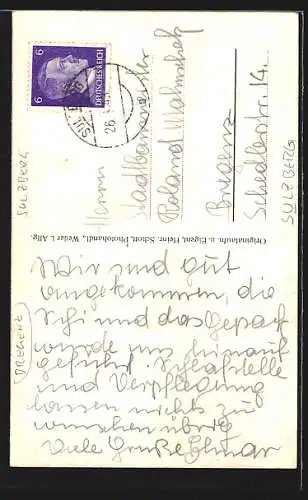 Wir sind gut
angekommen, die
Schi und das Gepäck
wurde uns hinauf
geführt. Schlafstelle
und Verpflegung
lassen nichts zu
wünschen übrig
Viele Grüße Elmar
Originalaufn. u. Eigent. Heinr. Schott, Photohandl., Weiler i. Allg.
Herrn
Stadtbaumeister
Roland
Bregenz
Schedlerstr. 14.
6 DEUTSCHES REICH 6
SULZBERG
26
SULZBERG
SULZBERG
BREGENZ